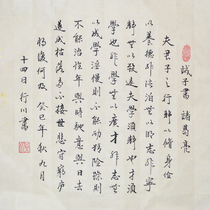 誡子書 諸葛亮
夫君子之行靜以修身儉
以養德非澹泊無以明志非寧
靜無以致遠夫學須靜也才須
學也非學無以廣才非志無
以成學淫慢則不能勵精險躁則
不能治性年與時馳意與日去
遂成枯落多不接世悲守窮廬
將復何及 癸巳年秋九月
十四日 行川書